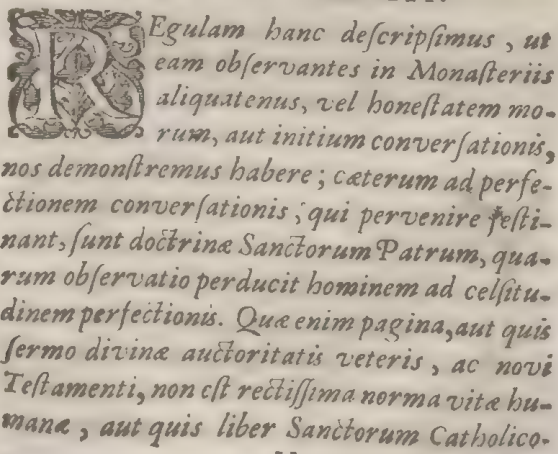 REgulam hanc deſcripſimus, ut
eam obſervantes in Monaſteriis
aliquatenus, vel honeſtatem mo-
rum, aut initium converſationis,
nos demonſtremus habere; cæterum ad perfe-
ctionem converſationis, qui pervenire feſti-
nant, ſunt doctrinæ Sanctorum Patrum, qua-
rum obſervatio perducit hominem ad celſitu-
dinem perfectionis. Quæ enim pagina, aut quis
ſermo divinæ auctoritatis veteris, ac novi
Teſtamenti, non eſt rectiſſima norma vitæ hu-
manæ, aut quis liber Sanctorum Catholico-